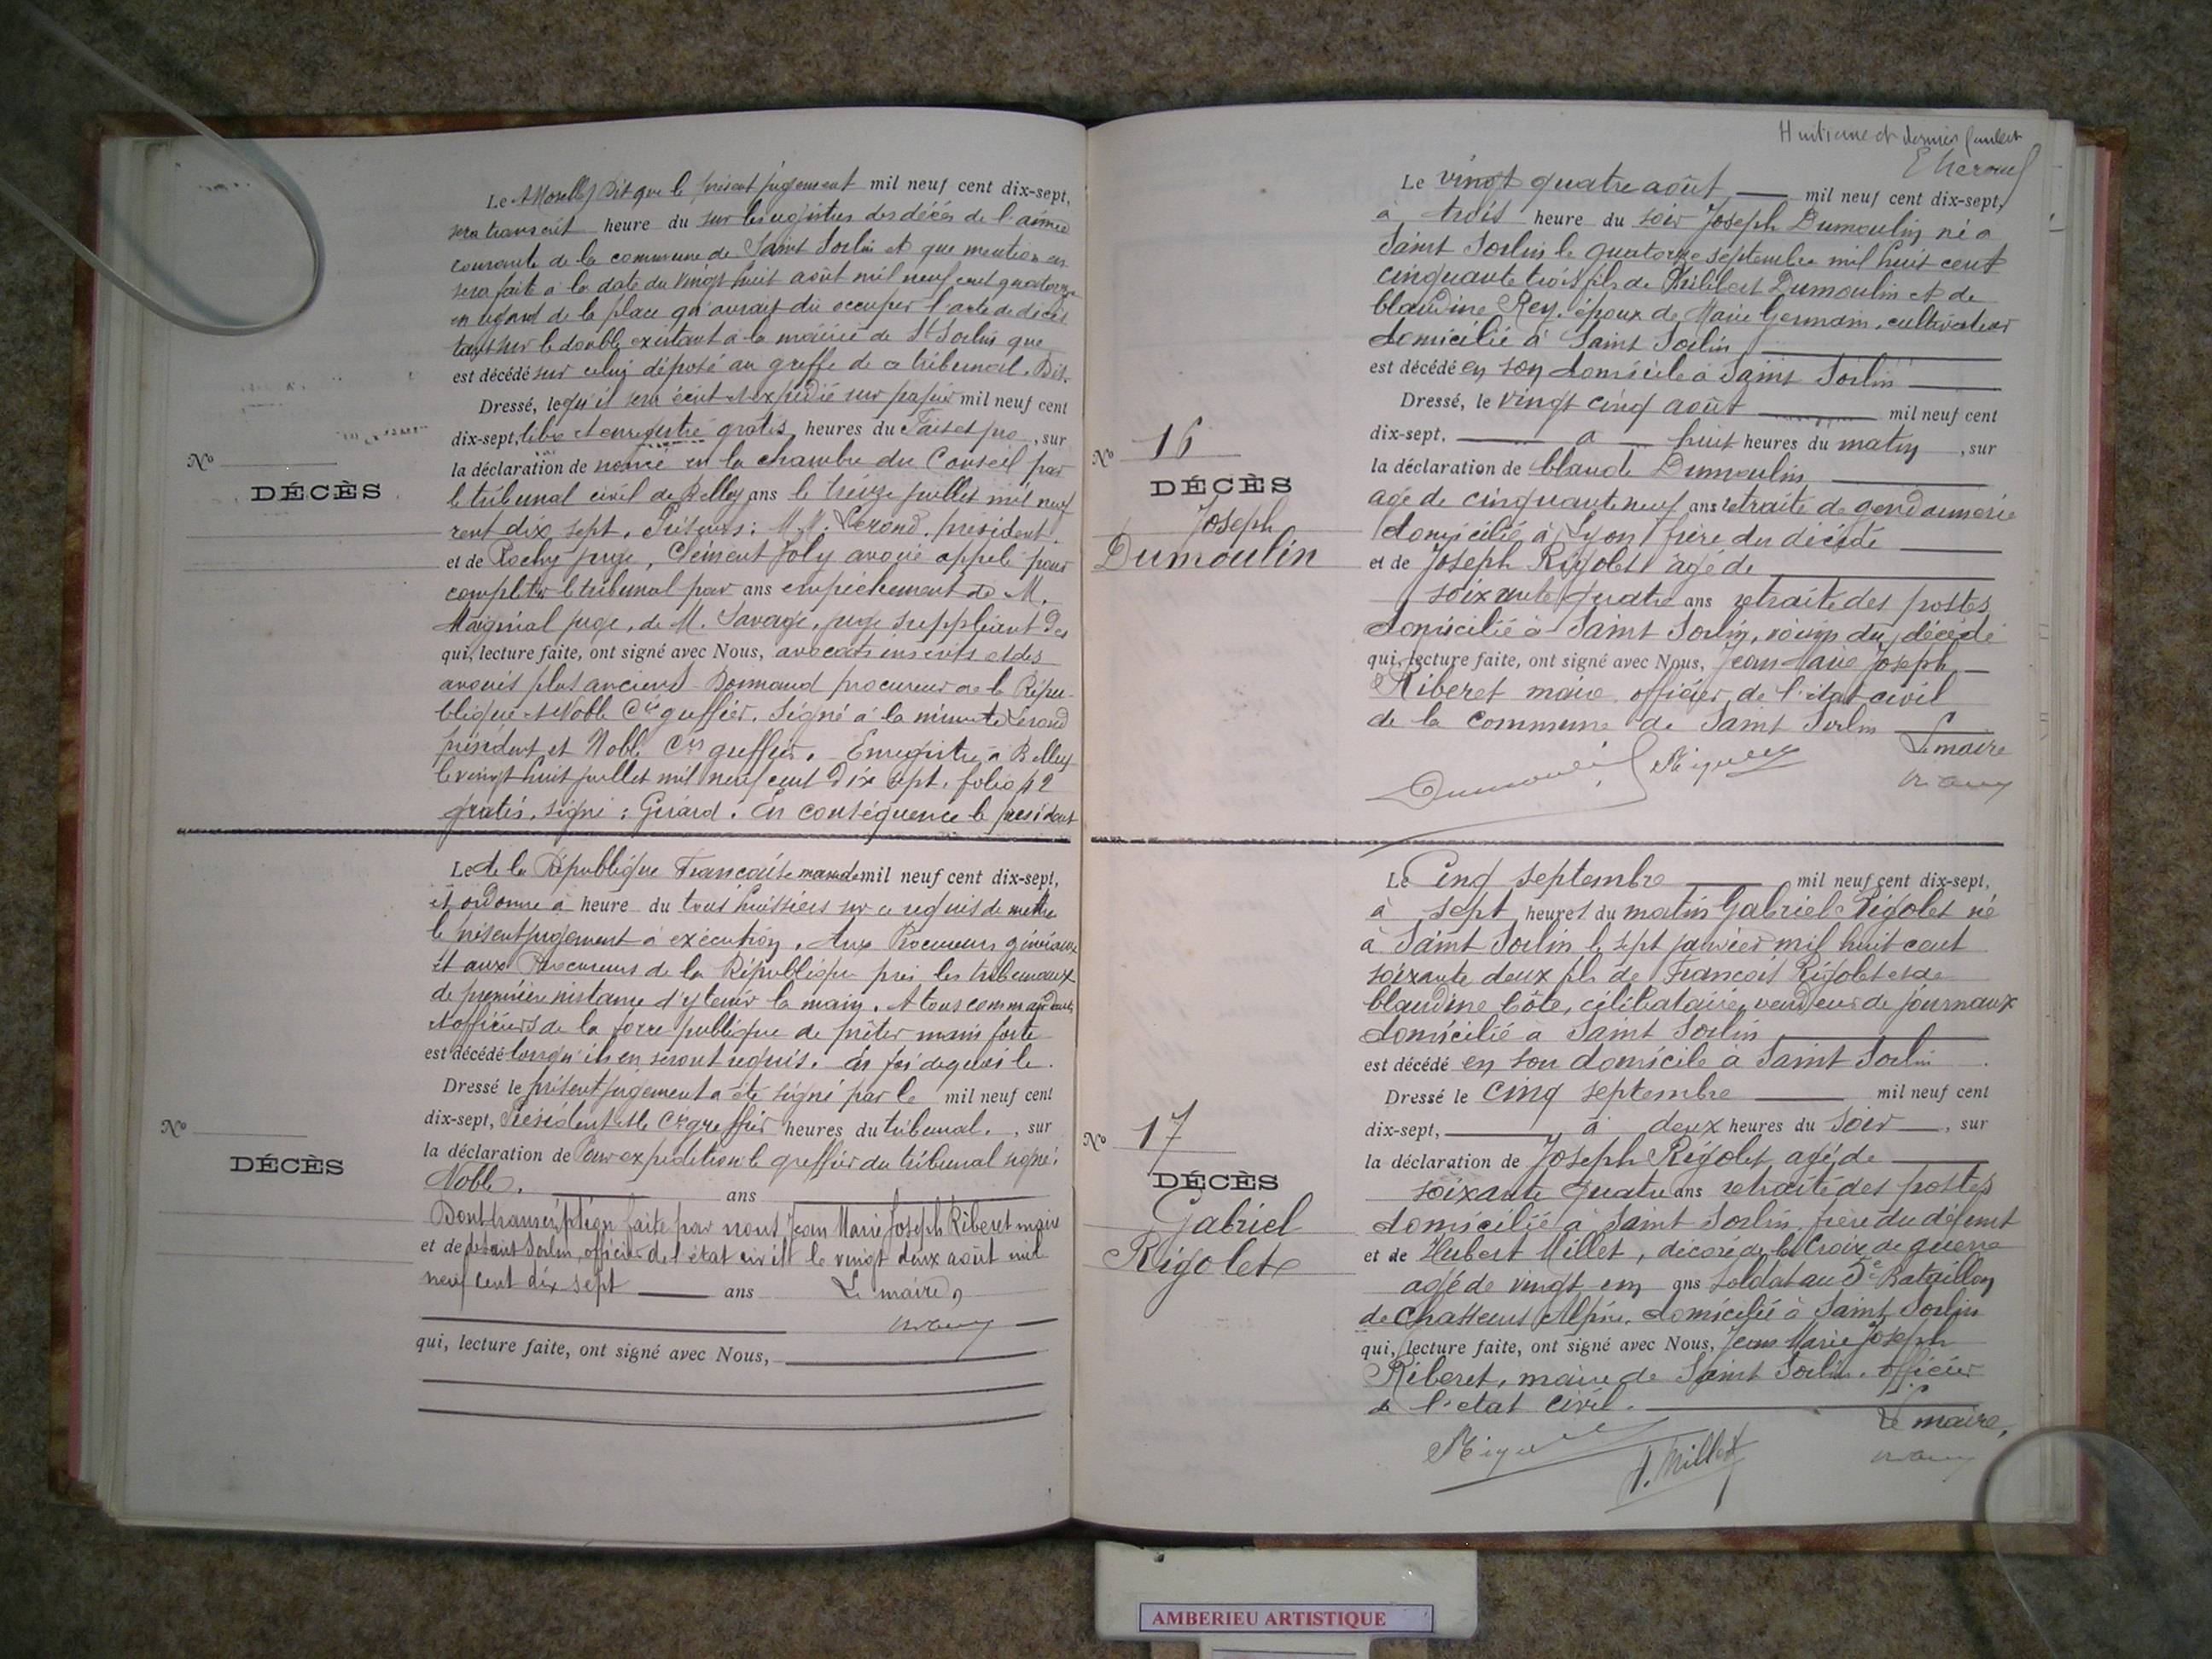 Le Moselle) Dit que le présent jugement mil neuf cent dix-sept,
sera transcrit heure du sur les registres des décès de l'année
courante de la commune de Saint Sorlin et que mention en
sera faite à la date du vingt huit août mil neuf cent quatorze
en regard de la place qu'aurait dû occuper l'acte de décès
tant sur le double existant à la mairie de St Sorlin que
est décédé sur celui déposé au greffe de ce tribunal. Dit
Dressé, le qu'il sera écrit et expédié sur papier mil neuf cent
dix-sept, libre et enregistré gratis heures du Fait et pro , sur
la déclaration de noncé en la chambre du Conseil par
No
DÉCÈS
le tribunal civil de Belley ans le treize juillet mil neuf
cent dix sept. Présents: M.M. Lerond, président
et de Rochy juge, Clément Joly avoué appelé pour
compléter le tribunal par ans empêchement de M.
Maginal juge, de M. Savage, juge suppléant des
qui, lecture faite, ont signé avec Nous, avocats inscrits et des
avoués plus anciens Bonnaud procureur de la Répu-
blique et Noble Cis greffier. Signé à la minute Lerond
président et Noble Cis greffier. Enregistré à Belley
le vingt huit juillet mil neuf cent dix sept, folio 12
gratis. signé : Girard. En conséquence le président
Le de la République Française mande mil neuf cent dix-sept,
et ordonne à heure du tous huissiers sur ce requis de mettre
le présent jugement à exécution. Aux Procureurs généraux
et aux Procureurs de la République près les tribunaux
de première instance d'y tenir la main. A tous commandants
et officiers de la force publique de prêter main forte
est décédé lorsqu'ils en seront requis. En foi de quoi le
Dressé le présent jugement a été signé par le mil neuf cent
dix-sept, Président et le Cis greffier heures du tribunal. , sur
No
DÉCÈS
la déclaration de Pour expédition le greffier du tribunal signé:
Noble. ans
Dont transcription faite par nous Jean Marie Joseph Riberet maire
et de de Saint Sorlin, officier de l'état civil le vingt deux août mil
neuf cent dix sept ans Le maire,
qui, lecture faite, ont signé avec Nous,
Huitième et dernier feuillet
No 16
DÉCÈS
Joseph
Dumoulin
Le vingt quatre août mil neuf cent dix-sept,
à trois heure du soir Joseph Dumoulin né a
Saint Sorlin le quatorze septembre mil huit cent
cinquante trois fils de Philibert Dumoulin et de
blaudine Rey, époux de Marie Germain, cultivateur
domicilié à Saint Sorlin
est décédé en son domicile à Saint Sorlin
Dressé, le vingt cinq août mil neuf cent
dix-sept, a huit heures du matin , sur
la déclaration de blaude Dumoulin
agé de cinquante neuf ans retraité de gendarmerie
domicilié à Lyon frère du décédé
et de Joseph Rigolet âgé de
soixante quatre ans retraité des postes
domicilié à Saint Sorlin, voisin du décédé
qui, lecture faite, ont signé avec Nous, Jean Marie Joseph
Riberet maire officier de l'état civil
de la commune de Saint Sorlin
Le maire
Dumoulin
No 17
DÉCÈS
Gabriel
Rigolet
Le Cinq septembre mil neuf cent dix-sept,
à sept heures du matin Gabriel Rigolet né
à Saint Sorlin le sept janvier mil huit cent
soixante deux fils de François Rigolet et de
blaudine Côte, célibataire, vendeur de journaux
domicilié a Saint Sorlin
est décédé en son domicile à Saint Sorlin
Dressé le cinq septembre mil neuf cent
dix-sept, à deux heures du soir , sur
la déclaration de Joseph Rigolet agé de
soixante quatre ans retraité des postes
domicilié à Saint Sorlin, frère du défunt
et de Hubert Millet, décoré de la Croix de guerre
agé de vingt un ans soldat au 5e Bataillon
de Chasseurs Alpins, domicilié à Saint Sorlin
qui, lecture faite, ont signé avec Nous, Jean Marie Joseph
Riberet, maire de Saint Sorlin, officier
de l'etat civil.
Le maire,
H. Millet
AMBERIEU ARTISTIQUE